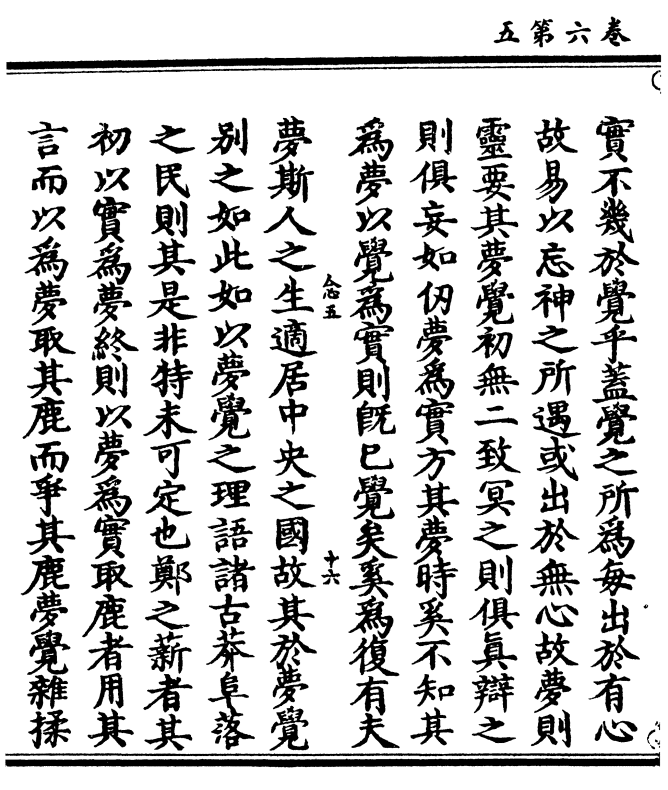 五第六卷
實不幾於覺乎蓋覺之所爲每出於有心
故易以忘神之所遇或出於無心故夢則
靈要其夢覺初無二致冥之則俱眞辯之
則俱妄如仞夢爲實方其夢時奚不知其
爲夢以覺爲實則旣已覺矣奚爲復有夫
念五
十六
夢斯人之生適居中央之國故其於夢覺
別之如此如以夢覺之理語諸古莽阜落
之民則其是非特未可定也鄭之薪者其
初以實爲夢終則以夢爲實取鹿者用其
言而以爲夢取其鹿而爭其鹿夢覺雜揉